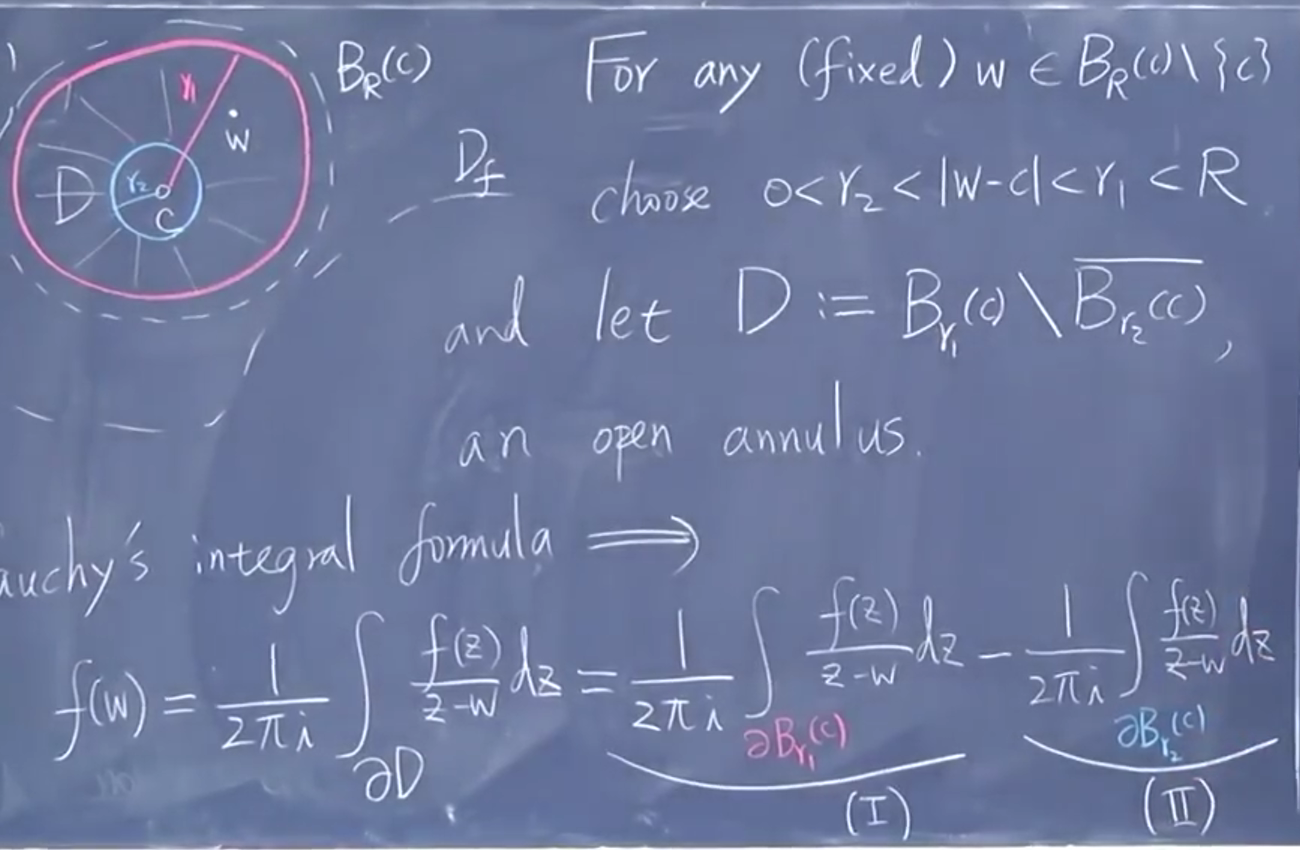 B_R(c)
r₁
w
D
r₂
C
D_f
For any (fixed) w ∈ B_R(c)\{c}
choose 0<r₂<|w-c|<r₁<R
and let D := B_{r₁}(c) \ \overline{B_{r₂}(c)},
an open annulus.
auchy's integral formula ⟹
f(w) = \frac{1}{2πi} ∫_{∂D} \frac{f(z)}{z-w} dz = \frac{1}{2πi} ∫_{∂B_{r₁}(c)} \frac{f(z)}{z-w} dz - \frac{1}{2πi} ∫_{∂B_{r₂}(c)} \frac{f(z)}{z-w} dz
(I) (II)